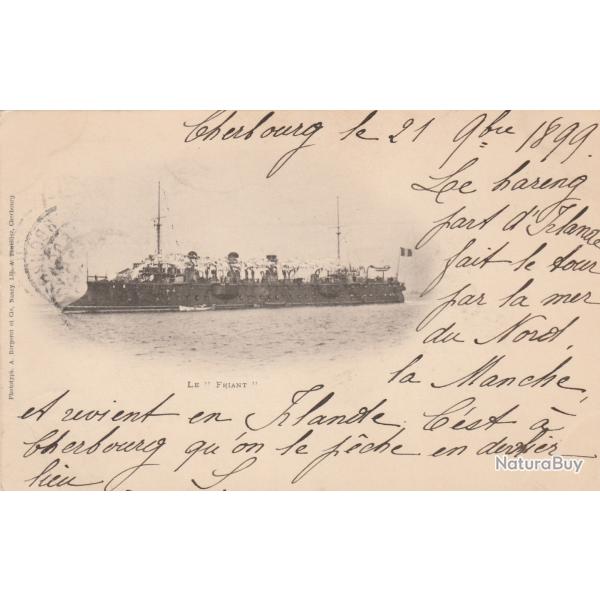 Cherbourg le 21 9bre 1899.
Le hareng
part d'Irlande
fait le tour
par la mer
du Nord,
la Manche,
et revient en Irlande, C'est à
Cherbourg qu'on le pêche en dernier
lieu
Le " Friant "
Phototypie A. Bergeret et Cie, Nancy
Cherbourg
NaturaBuy